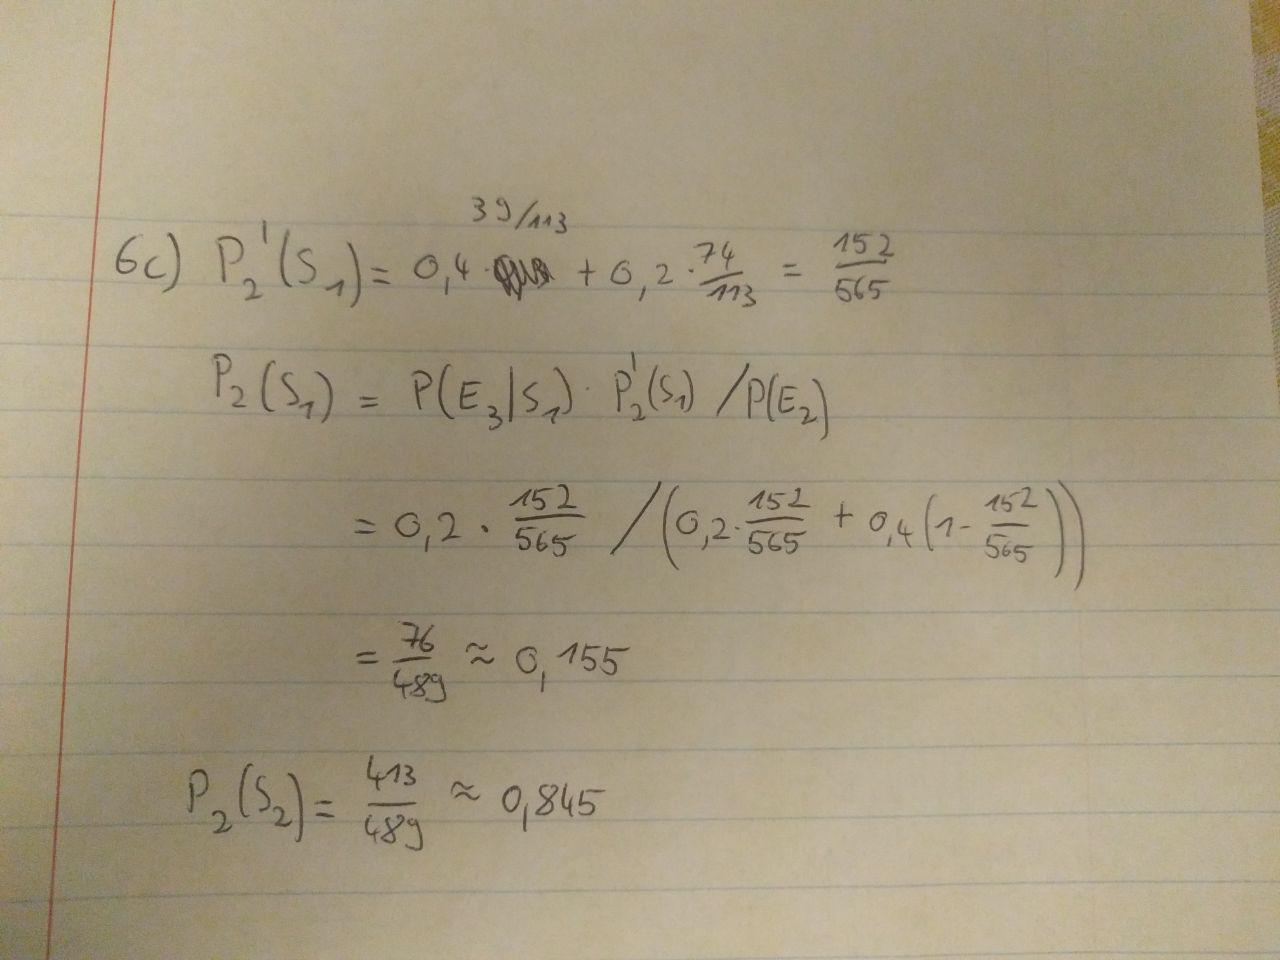 39/113
6c) P₂'(S₁) = 0,4 · + 0,2 · 74/113 = 152/565
P₂(S₁) = P(E₃|S₁) · P₂'(S₁) / P(E₂)
= 0,2 · 152/565 / (0,2 · 152/565 + 0,4 (1 - 152/565))
= 76/489 ≈ 0,155
P₂(S₂) = 413/489 ≈ 0,845